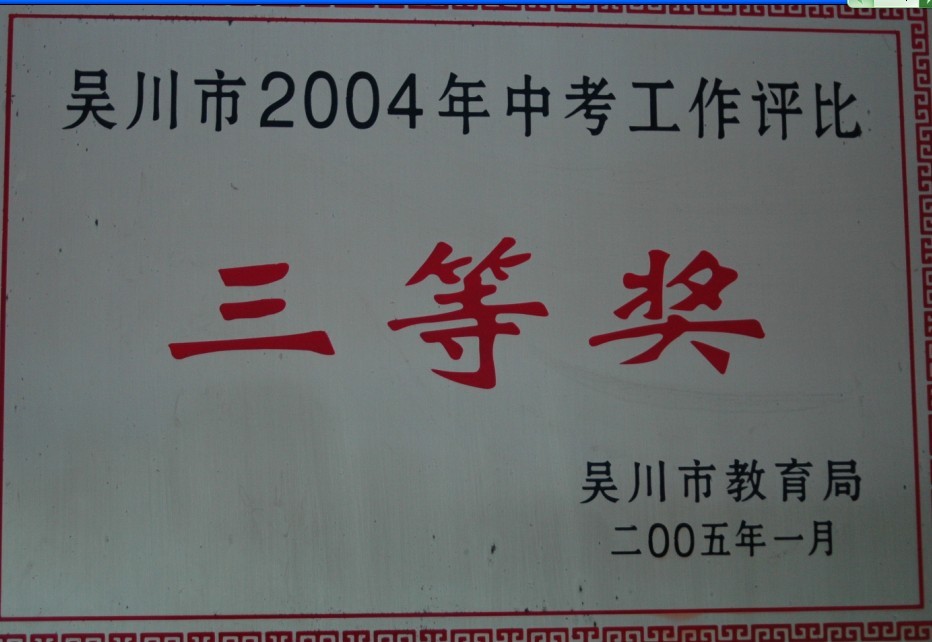 吴川市2004年中考工作评比
三等奖
吴川市教育局
二00五年一月